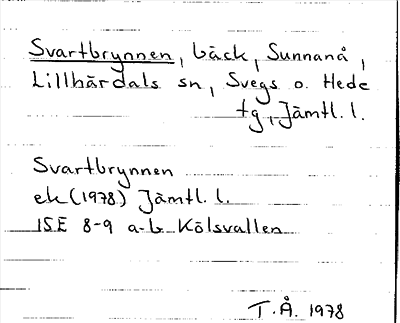 Svartbrynnen, bäck, Sunnanå,
Lillhärdals sn, Svegs o. Hede
tg, Jämtl. l.
Svartbrynnen
ek (1978) Jämtl. l.
15E 8-9 a-b Kölsvallen
T.Å. 1978